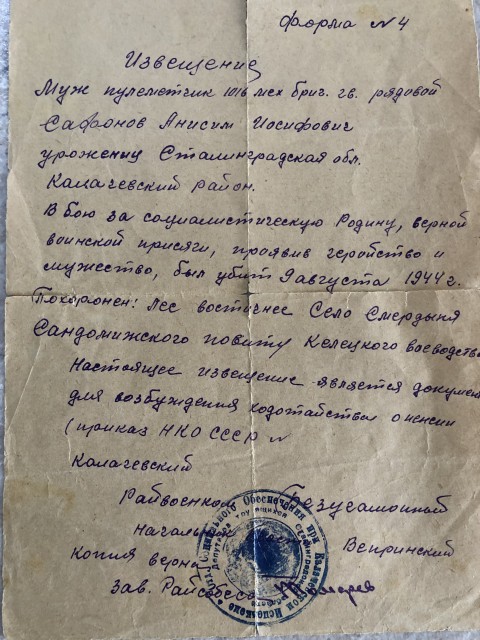 Форма № 4
Извещение
Муж пулеметчик 1016 мех бриг. гв. рядовой
Сафронов Анисим Иосифович
уроженец Сталинградская обл.
Калачевский район.
В бою за социалистическую Родину, верной
воинской присяги, проявив геройство и
мужество, был убит 9 августа 1944 г.
Похоронен: лес восточнее Село Смердыня
Сандомижского повиту Келецкого воеводства
Настоящее извещение является докумен
для возбуждения ходотайства о пенсии
(приказ НКО СССР №
Калачевский
Райвоенком Безусаомный
Начальник Вепринский
Копия верна
Зав. Райсобеса